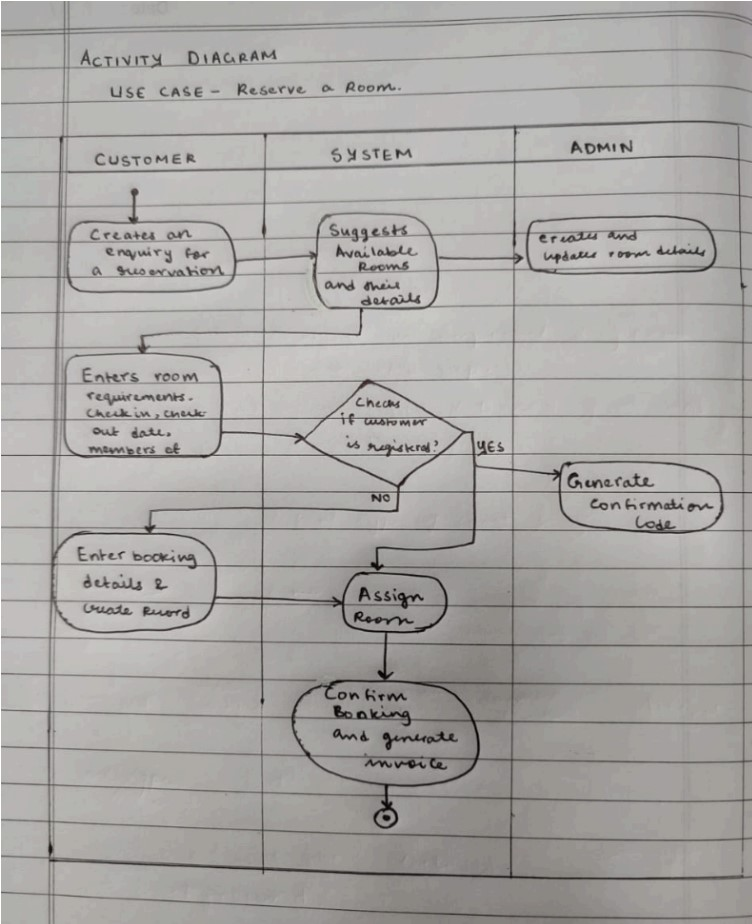 ACTIVITY DIAGRAM
USE CASE - Reserve a Room.
CUSTOMER
SYSTEM
ADMIN
Creates an
enquiry for
a reservation
Suggests
Available
Rooms
and their
details
creates and
updates room details
Enters room
requirements.
Check in, check
out date,
members of
Checks
if customer
is registered?
YES
NO
Generate
Confirmation
Code
Enter booking
details &
create Record
Assign
Room
Confirm
Booking
and generate
invoice